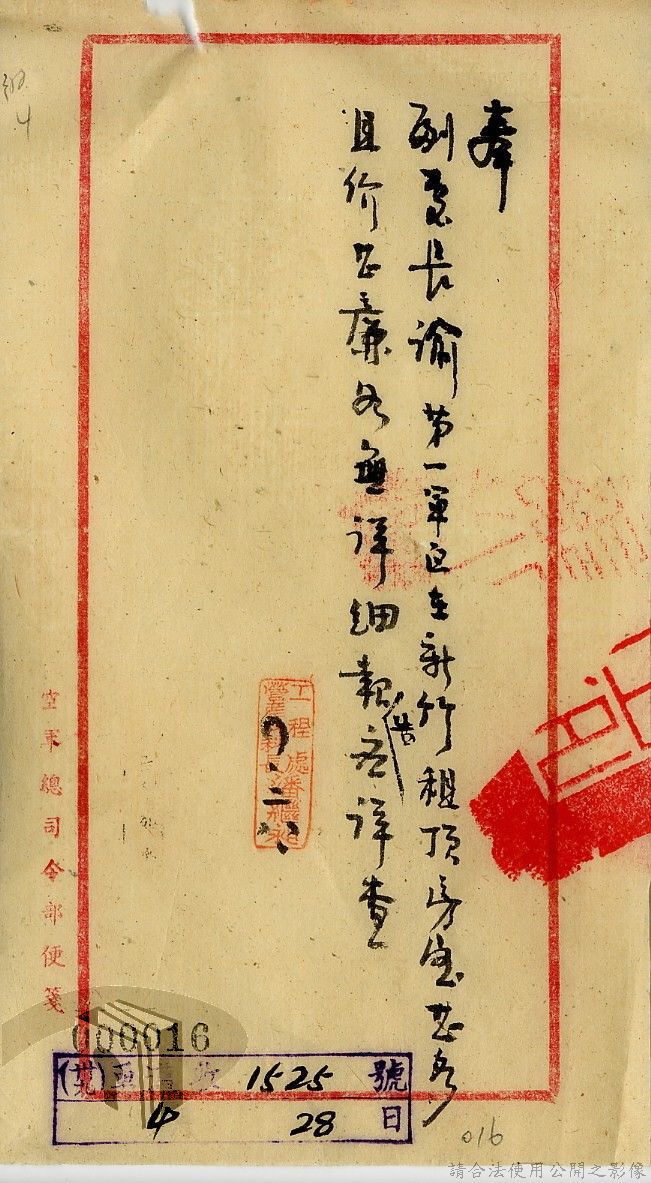 奉
副處長諭第一軍區在新竹租頂房屋甚多
且价甚廉各無詳細報告應詳查
工程處
空軍總司令部便箋
000016
1525 號
4 28 日
016
請合法使用公開之影像